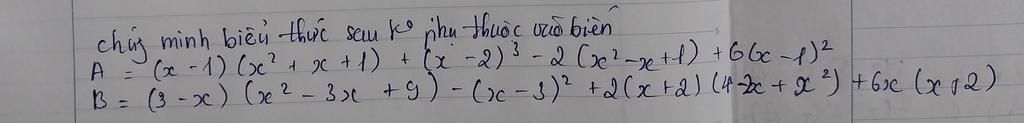 chứg minh biểu thức sau ko phụ thuộc vào biến
A = (x - 1) (x² + x + 1) + (x - 2)³ - 2 (x² - x + 1) + 6(x - 1)²
B = (3 - x) (x² - 3x + 9) - (x - 3)² + 2(x + 2) (4 - 2x + x²) + 6x (x + 2)